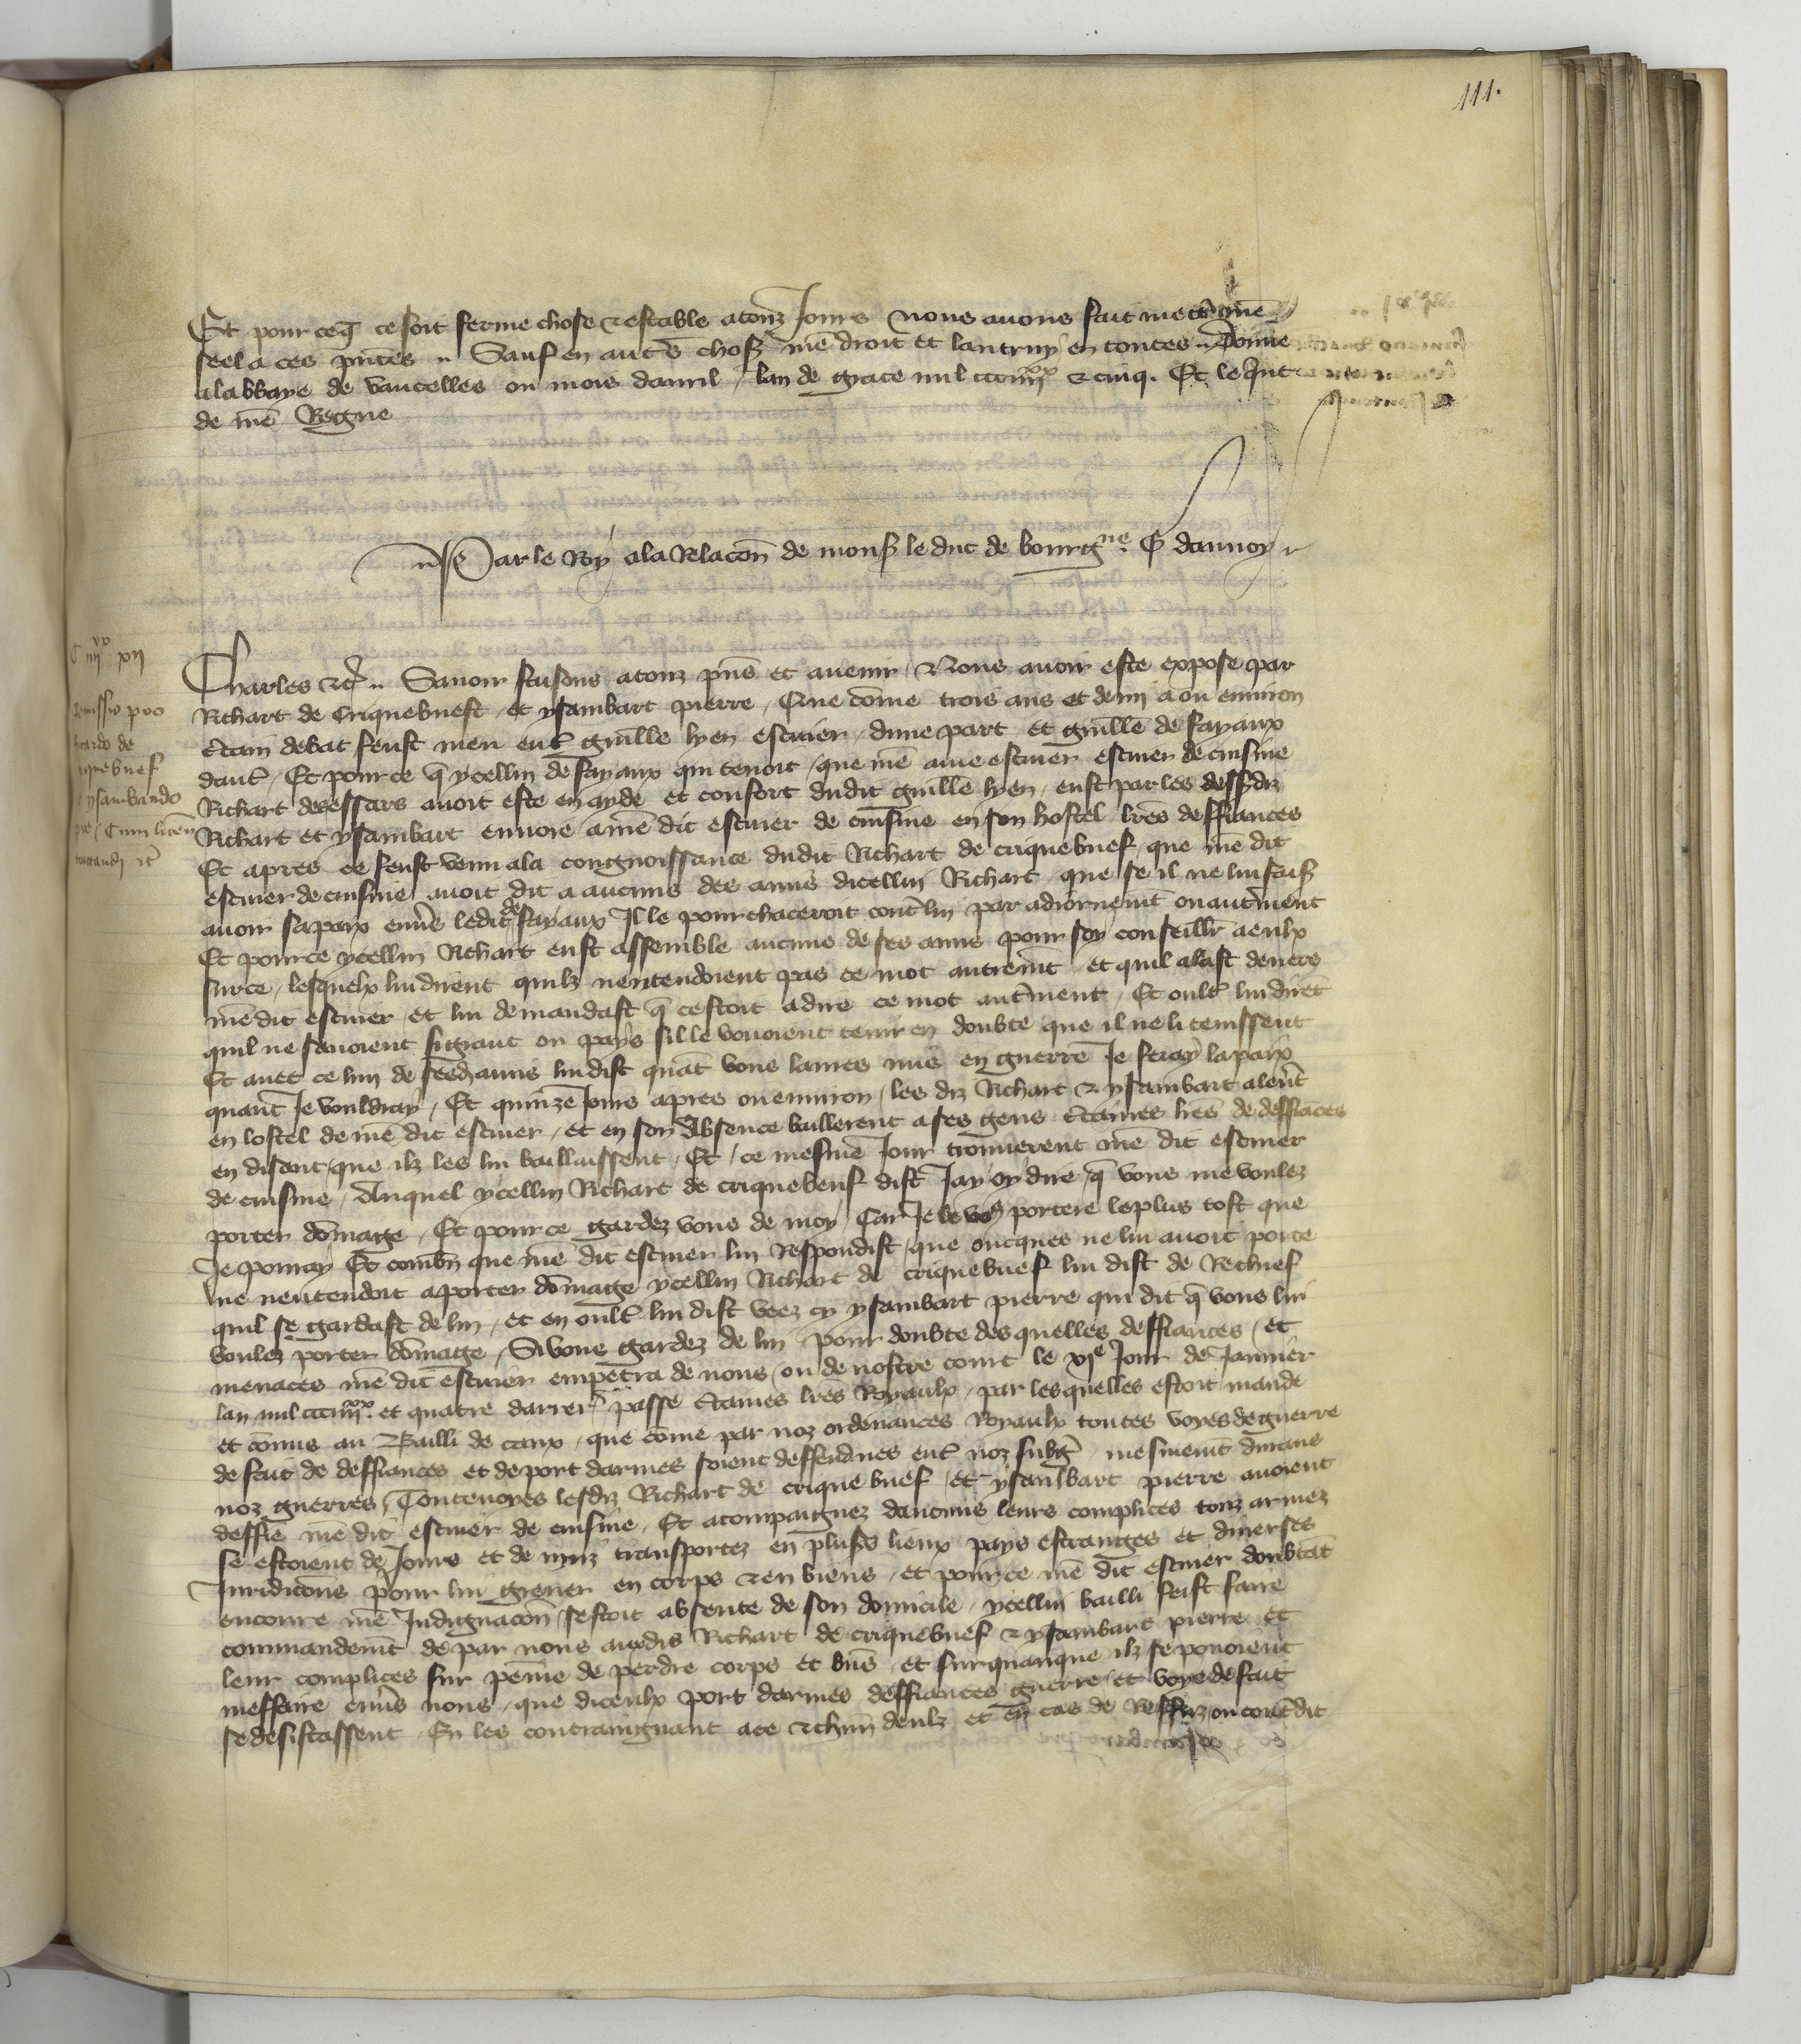 111.
Et pour ceq̄ ce soit ferme chose & estable a touz Jours nous auons fait mettre nr̄e
seel a ces pn̄tes .. Sauf en autrs̄ chos̄ nr̄e droit et lautruy en toutes .. Donne
a labbaye de vaucelles ou mois dauril / lan de grace mil ccciiiixx & cinq. Et le quint
de nr̄e Regne
.. Par le Roy a la Relacōn de mons̄ le duc de bourgne. G dannoy
C iiiixx xii
Remissio pro
Ricardo de
criquebuef
& ysambardo
pierre / Cum licen
Charles &c̄ .. Sauoir faisons a touz pn̄s et auenir / Nous auoir este expose par
Richart de Criquebueft / et ysambart pierre / Que cōme trois ans et demi a ou enuiron
c̄tain debat feust meu ent̄ guill̄e lyen escuier / dune part et guill̄e de fayaux
daut̄ / Et pour ce q̄ ycellui de fayaux qui tenoit / que nr̄e ame escuier escuier de cuisine
Richart des essars auoit este en ayde et confort dudit guill̄e lyen / eust par les dessusdiz
Richart et ysambart enuoie a nr̄e dit escuier de cuisine en son hostel lr̄es deffiances
Et apres ce feust venu a la congnoissance dudit Richart de criquebuef / que nr̄e dit
escuier de cuisine auoit dit a aucuns des amis dicellui Richart / que se il ne lui fais̄
auoir sa paix enuers ledit de fayaux Il le pourchaceroit cont̄ lui par adiornemt̄ ou autremen̄t
Et pour ce ycellui Richart eust assemble aucuns de ses amis pour soy conseillr̄ a eulx
sur ce / lesquelx lui dirent quilz nentendoient pas ce mot autremt̄ / et quil alast deuers
nr̄e dit escuier / et lui demandast q̄ cestoit a dire ce mot autrement / Et oult̄ lui dirēt
quil ne sauoient si grant ou pays sil le vouoient tenir en doubte que il ne li tenissent
Et auec ce lun de sesdiz amis lui dist quāt vous laures mis en guerre Je feray la paix
quant Je vouldray / Et quinze Jours apres ou enuiron / les diz Richart & ysambart alerēt
en lostel de nr̄e dit escuier / et en son absence baillerent a ses gens c̄taines lr̄es de deffiāces
en disant / que ilz les lui baillaissent / Et / ce mesme Jour trouuerent nr̄e dit escuier
de cuisine / Auquel ycellui Richart de criquebeuf dist Jay oy dire / q̄ vous me voulez
porter dōmage / Et pour ce gardez vous de moy / Car Je le vous porteré le plus tost que
Je pourray Et combn̄ que nr̄e dit escuier lui Respondist / que oncques ne lui auoit porte
ne nentendoit a porter dōmage ycellui Richart de criquebuef lui dist de Rechief
quil se gardast de lui / et en oult̄ lui dist veez cy ysambart pierre qui dit q̄ vous lui
voulez porter dōmage / Si vous gardez de lui / pour doubte des quelles deffiances / et
menaces nr̄e dit escuier empetra de nous / ou de nostre court le xie Jour de Januier
lan mil ccciiiixx. et quatre darrer̄ passe c̄taines lr̄es Royaulx / par lesquelles estoit mande
et cōmis au Bailli de caux / que cōme par noz ordenances Royaulx toutes voyes de guerre
de fait de deffiances et de port darmes soient deffendues ent̄ noz subḡ mesmemt̄ durans
noz guerres / Toutesuoyes lesdiz Richart de criquebuef / et ysambart pierre auoient
deffie nr̄e dit escuier de cuisine / Et acompaignez daucuns leurs complices touz armez
se estoient de Jours et de nuiz transportez en plus̄s lieux pays estranges et diuerses
Juridicōns pour lui greuer en corps & en biens / et pour ce nr̄e dit escuier doubtāt
encourre nr̄e Indignacōn sestoit absente de son domicile / ycellui bailli feist faire
commandemt̄ de par nous auxdis Richart de criquebuef & ysambart pierre et
leur complices sur peine de perdre corps et bn̄s / et sur quanque ilz se pouoient
meffaire enuers nous / que diceulx port darmes deffiances guerre / et voye de fait
se desistassent / En les contraingnant a ce & chūn deulz et en cas de Reffuz ou contredit